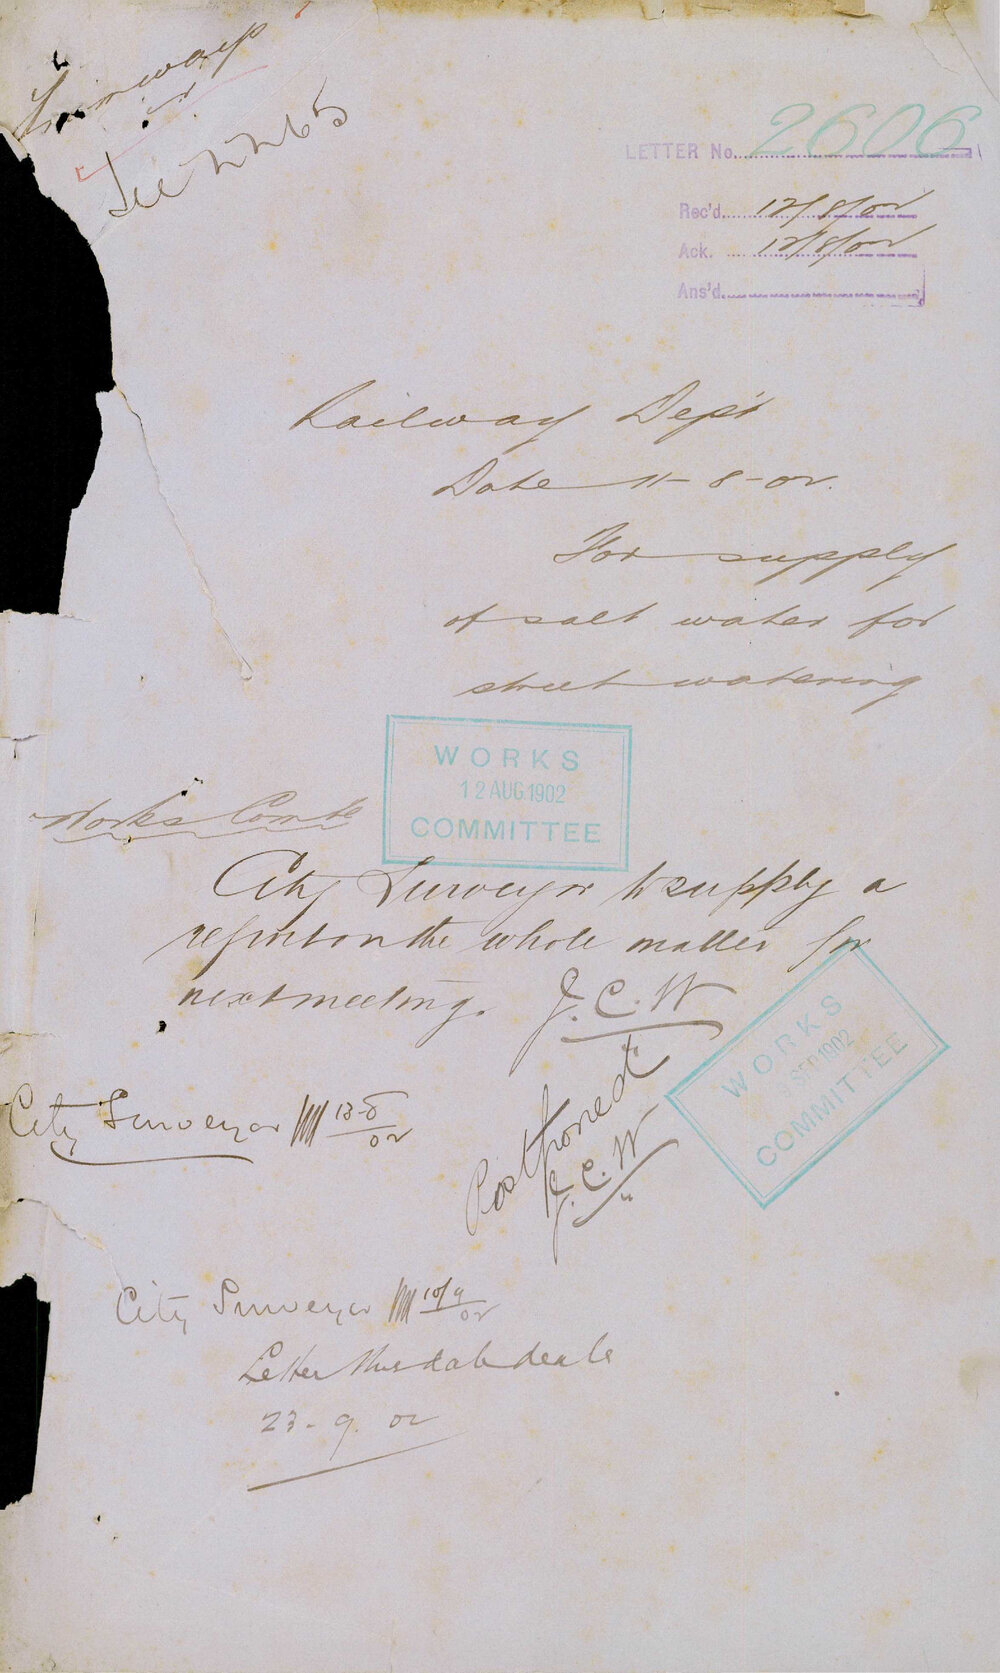 See 2265
LETTER No. 2606
Rec'd. 12/8/02
Ack. 12/8/02
Ans'd.
Railway Dept
Date 11-8-02.
For supply
of salt water for
street watering
WORKS
12 AUG 1902
COMMITTEE
Works Comte
City Surveyor to supply a
report on the whole matter for
next meeting. J.C.W
WORKS
SEP 1902
COMMITTEE
City Surveyor 13-8/02
Postponed
J.C.W
City Surveyor 10/9/02
Letter this date
23-9.02